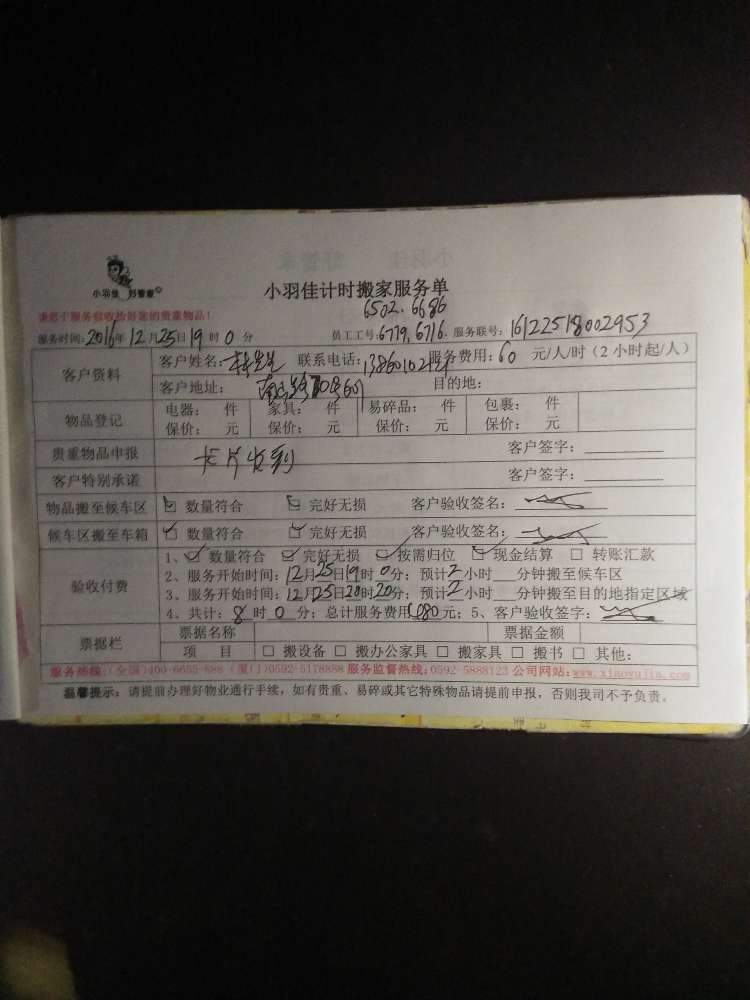 小羽佳 好管家
小羽佳计时搬家服务单
6502、6686
服务时间:2016年12月25日19时0分 员工工号:6779、6716 服务联号:16122518002953
客户资料
客户姓名: 联系电话: 服务费用:60 元/人/时(2小时起/人)
客户地址: 目的地:
物品登记
电器: 件 家具: 件 易碎品: 件 包裹: 件
保价: 元 保价: 元 保价: 元 保价: 元
贵重物品申报 卡片收到 客户签字:
客户特别承诺 客户签字:
物品搬至候车区 ☑ 数量符合 ☑ 完好无损 客户验收签名:
候车区搬至车箱 ☑ 数量符合 ☑ 完好无损 客户验收签名:
验收付费
1、☑ 数量符合 ☑ 完好无损 ☑ 按需归位 ☑ 现金结算 □ 转账汇款
2、服务开始时间:12月25日19时0分;预计2小时___分钟搬至候车区
3、服务开始时间:12月25日20时20分;预计2小时___分钟搬至目的地指定区域
4、共计:8时0分;总计服务费用 元;5、客户验收签字:
票据栏
票据名称 票据金额
项 目 □ 搬设备 □ 搬办公家具 □ 搬家具 □ 搬书 □ 其他:
服务热线:(全国)400-6655-888 (厦门)0592-5178888 服务监督热线:0592-5888123 公司网站:www.xiaoyujia.com
温馨提示:请提前办理好物业通行手续,如有贵重、易碎或其它特殊物品请提前申报,否则我司不予负责。